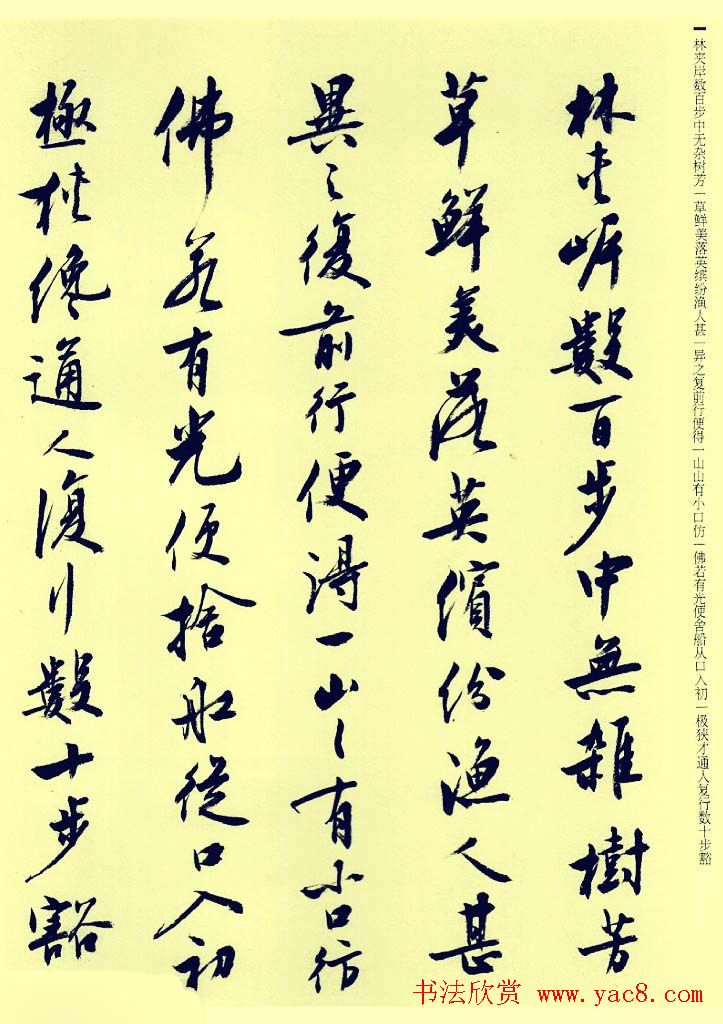 林夹岸数百步中无杂树芳一草鲜美落英缤纷渔人甚一异之复前行便得一山山有小口仿一佛若有光便舍船从口入初一极狭才通人复行数十步豁
林夾岸數百步中無雜樹芳
草鮮美落英繽紛漁人甚
異之復前行便得一山〻有小口彷
佛若有光便捨船從口入初
極狹纔通人復行數十步豁
书法欣赏 www.yac8.com